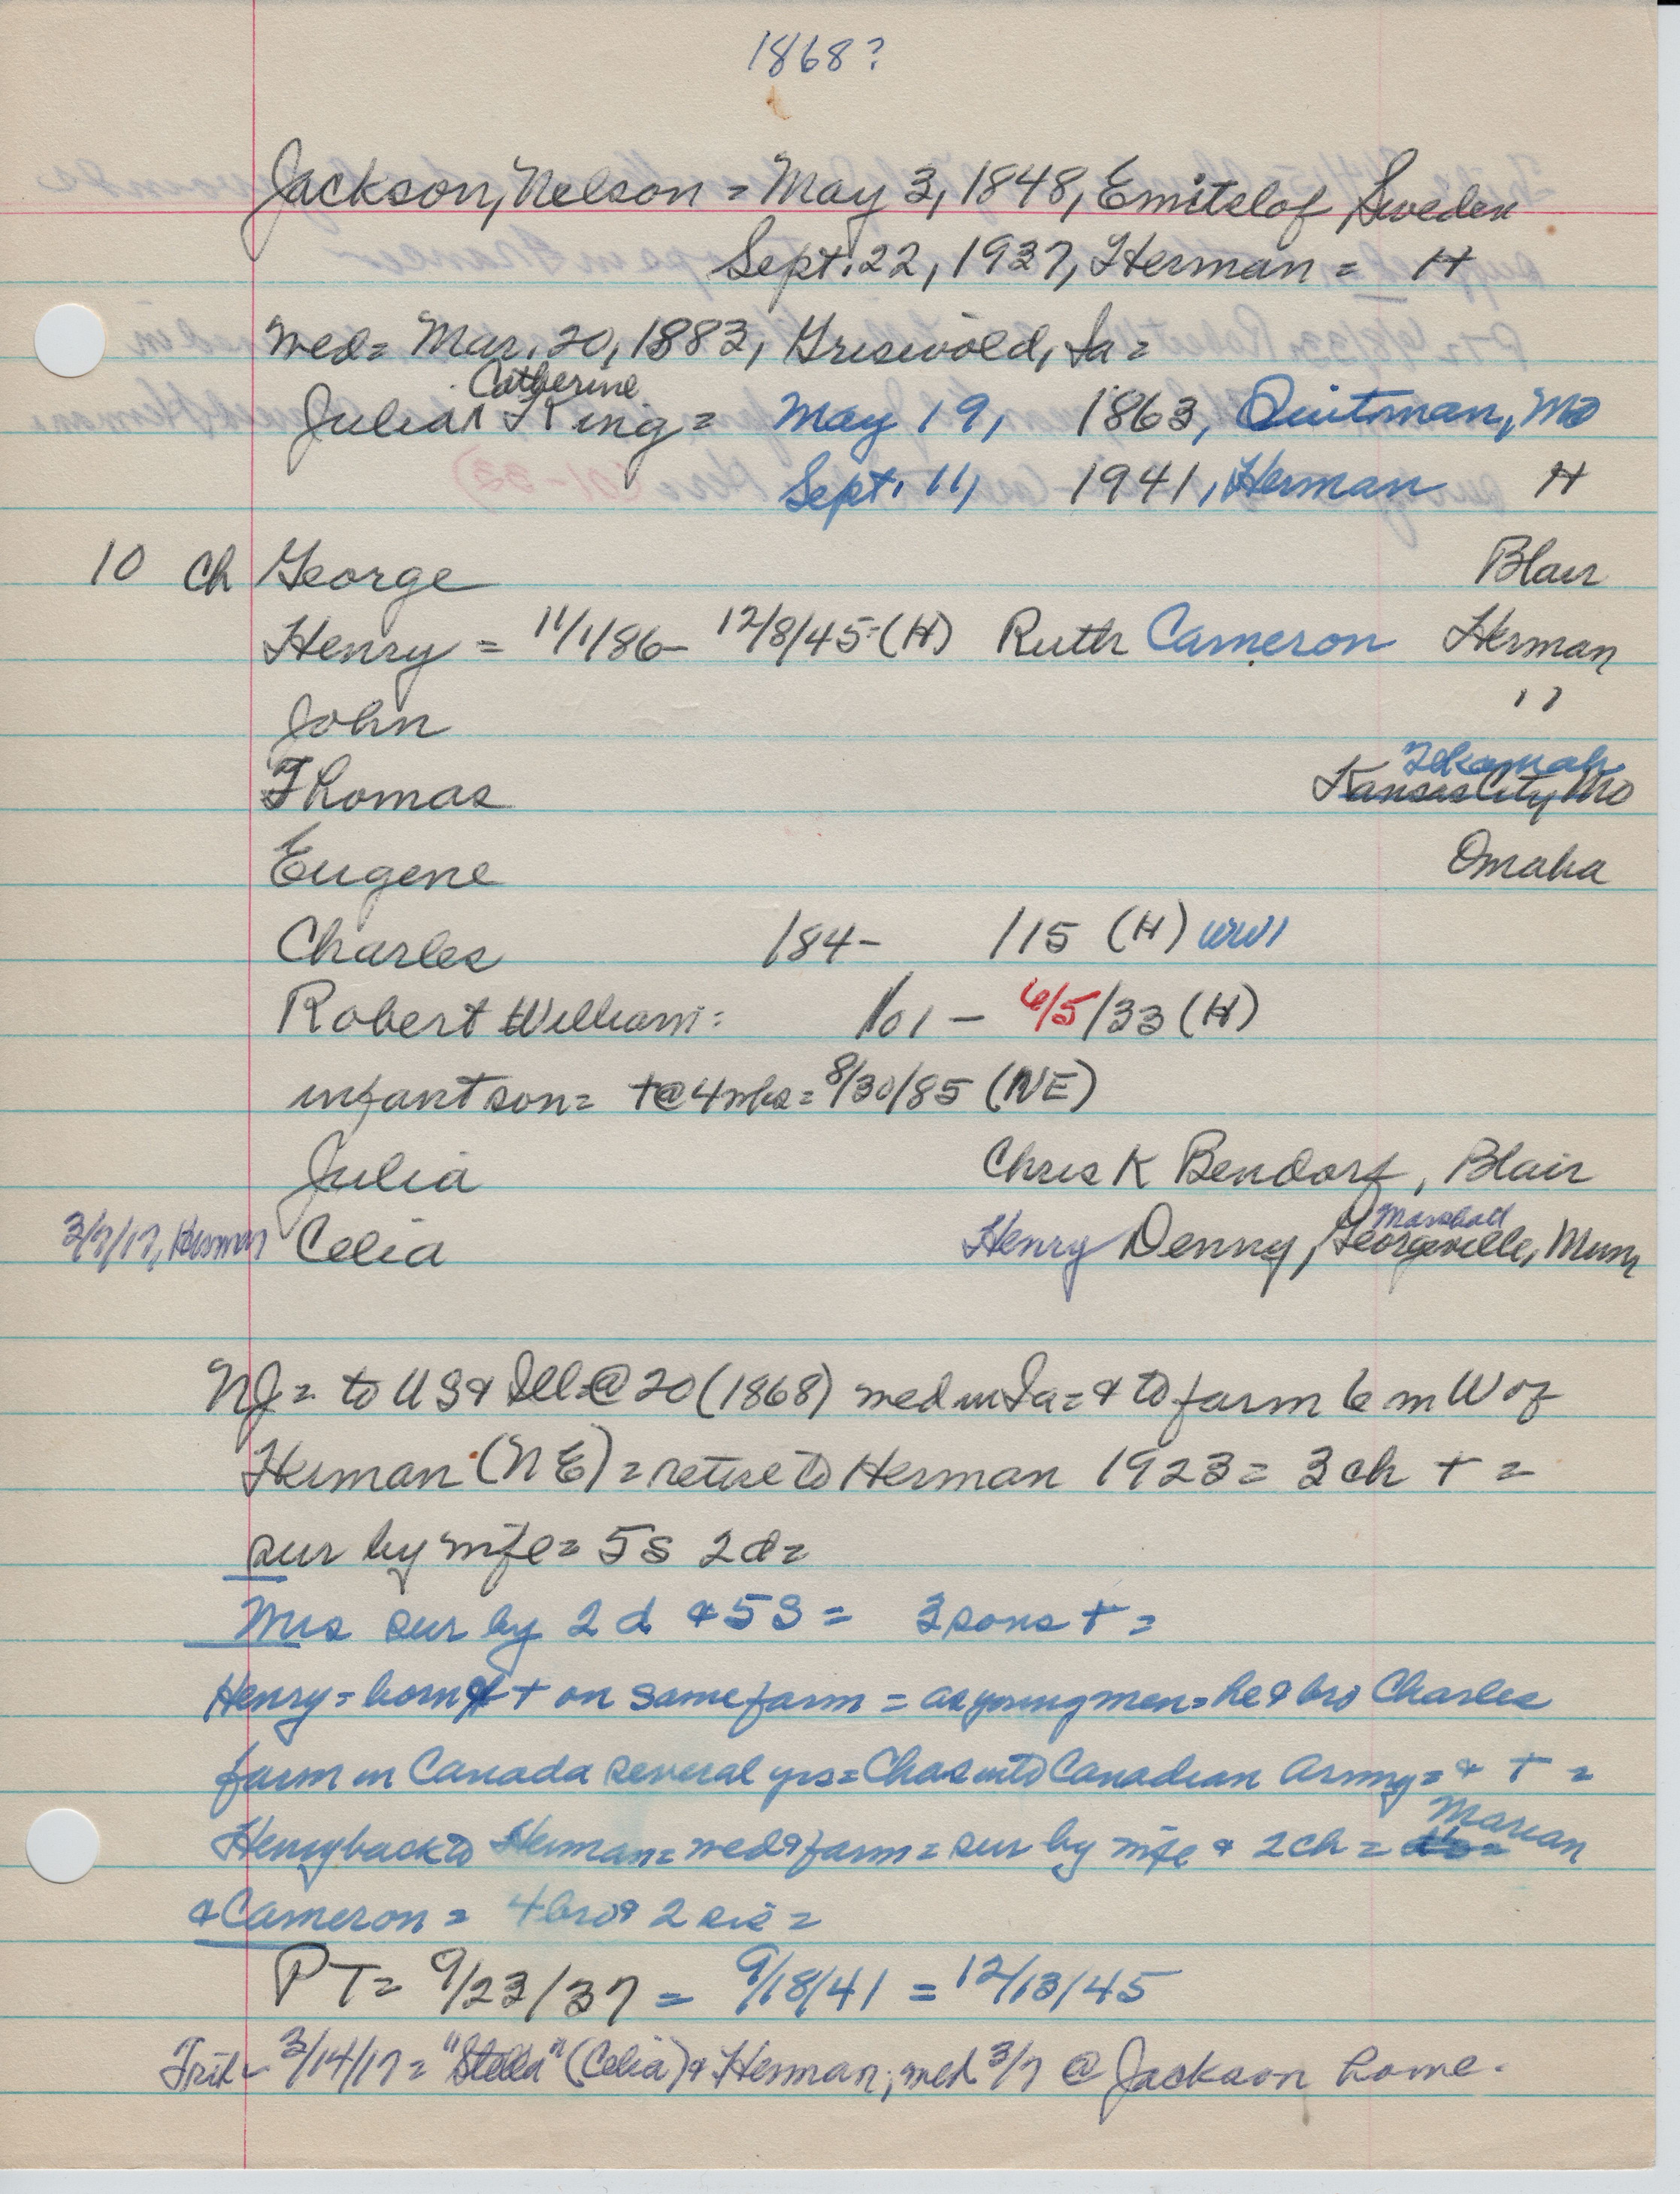 1868?
Jackson, Nelson = May 3, 1848, Emitslof Sweden
Sept. 22, 1937, Herman = H
med = Mar. 20, 1883, Griswold, Ia =
Catherine
Julia ∧ King = May 19, 1863, Quitman, Mo
Sept. 11, 1941, Herman H
10 ch George Blair
Henry = 11/1/86 - 12/8/45 = (H) Ruth Cameron Herman
John "
Tekamah
Thomas Kansas City Mo
Eugene Omaha
Charles /84 - /15 (H) WWI
Robert William = /01 - 6/5/33 (H)
infant son = +@ 4 wks = 8/30/85 (NE)
Julia Chris K Bendorf, Blair
Marshall
3/7/17, Herman Celia Henry Denny, Georgeville, Minn
NJ = to US & Ill = @ 20 (1868) med in Ia = & to farm 6 m W of
Herman (NE) = retire to Herman 1923 = 3 ch + =
sur by wife = 5s 2d =
Mrs sur by 2 d & 5 S = 3 sons + =
Henry = born & + on same farm = as young men = he & bro Charles
farm in Canada several yrs = Chas into Canadian Army = & + =
Henry back to Herman = med & farm = sur by wife & 2 ch = Marian
& Cameron = 4 bro & 2 sis =
PT = 9/23/37 = 9/18/41 = 12/13/45
Trib = 3/14/17 = "Stella" (Celia) & Herman, med 3/7 @ Jackson home.